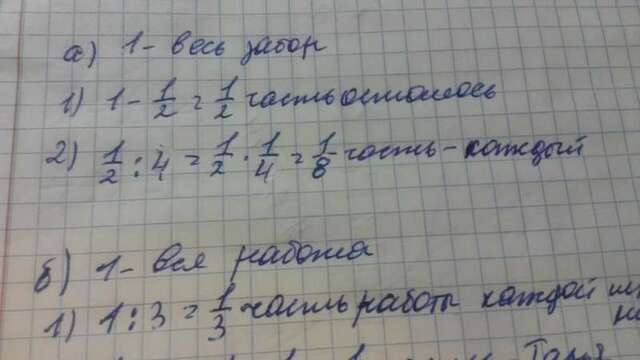 а) 1 - весь забор
1) 1 - 1/2 = 1/2 часть осталось
2) 1/2 : 4 = 1/2 · 1/4 = 1/8 часть - каждый
б) 1 - вся работа
1) 1 : 3 = 1/3 часть работы каждой